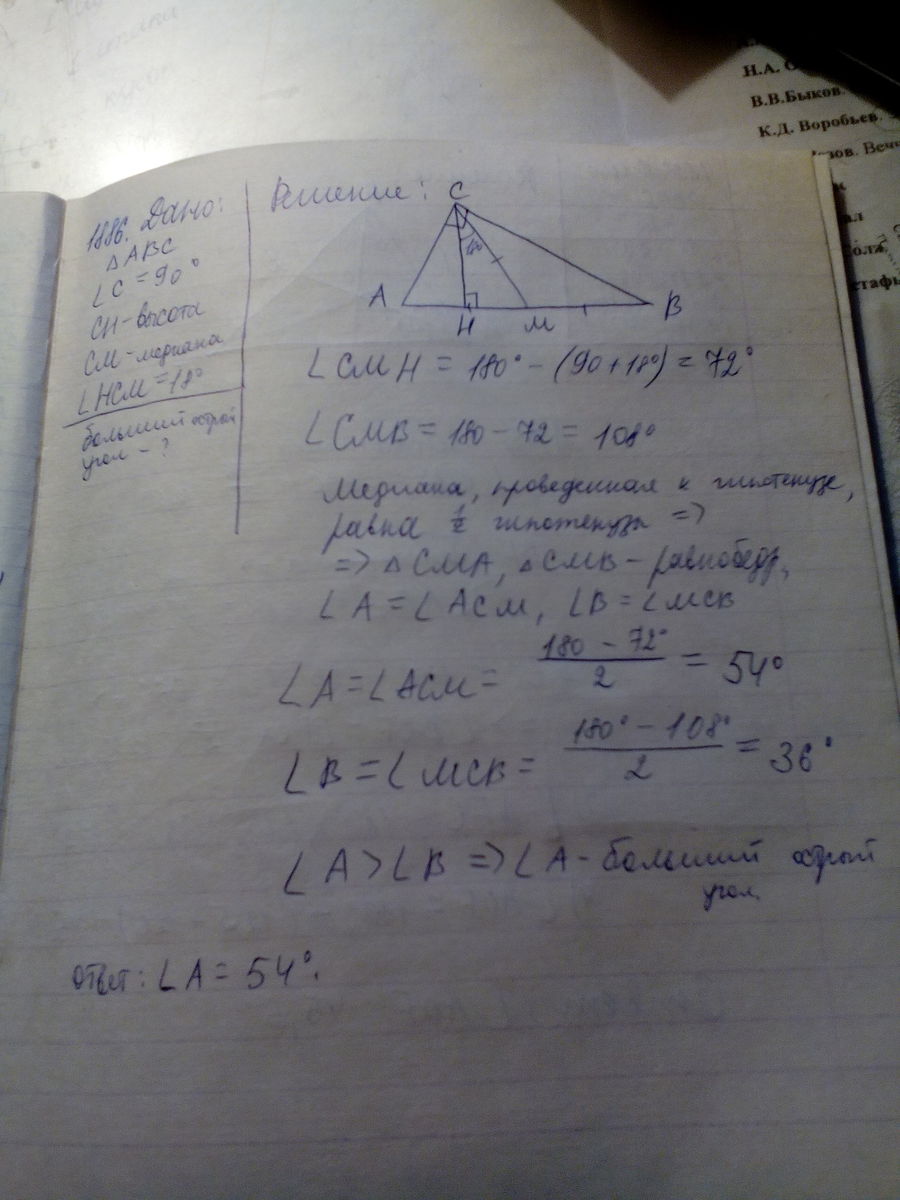 1886. Дано:
△ABC
∠C = 90°
CH - высота
CM - медиана
∠HCM = 18°
больший острый
угол - ?
Решение:
C
18°
A
H
M
B
∠CMH = 180° - (90 + 18°) = 72°
∠CMB = 180 - 72 = 108°
Медиана, проведенная к гипотенузе,
равна 1/2 гипотенузы =>
=> △CMA, △CMB - равнобедр,
∠A = ∠ACM, ∠B = ∠MCB
∠A = ∠ACM = (180 - 72°)/2 = 54°
∠B = ∠MCB = (180° - 108°)/2 = 36°
∠A > ∠B => ∠A - больший острый
угол.
Ответ: ∠A = 54°.
Н.А.
В.В.Быков.
К.Д. Воробьев.